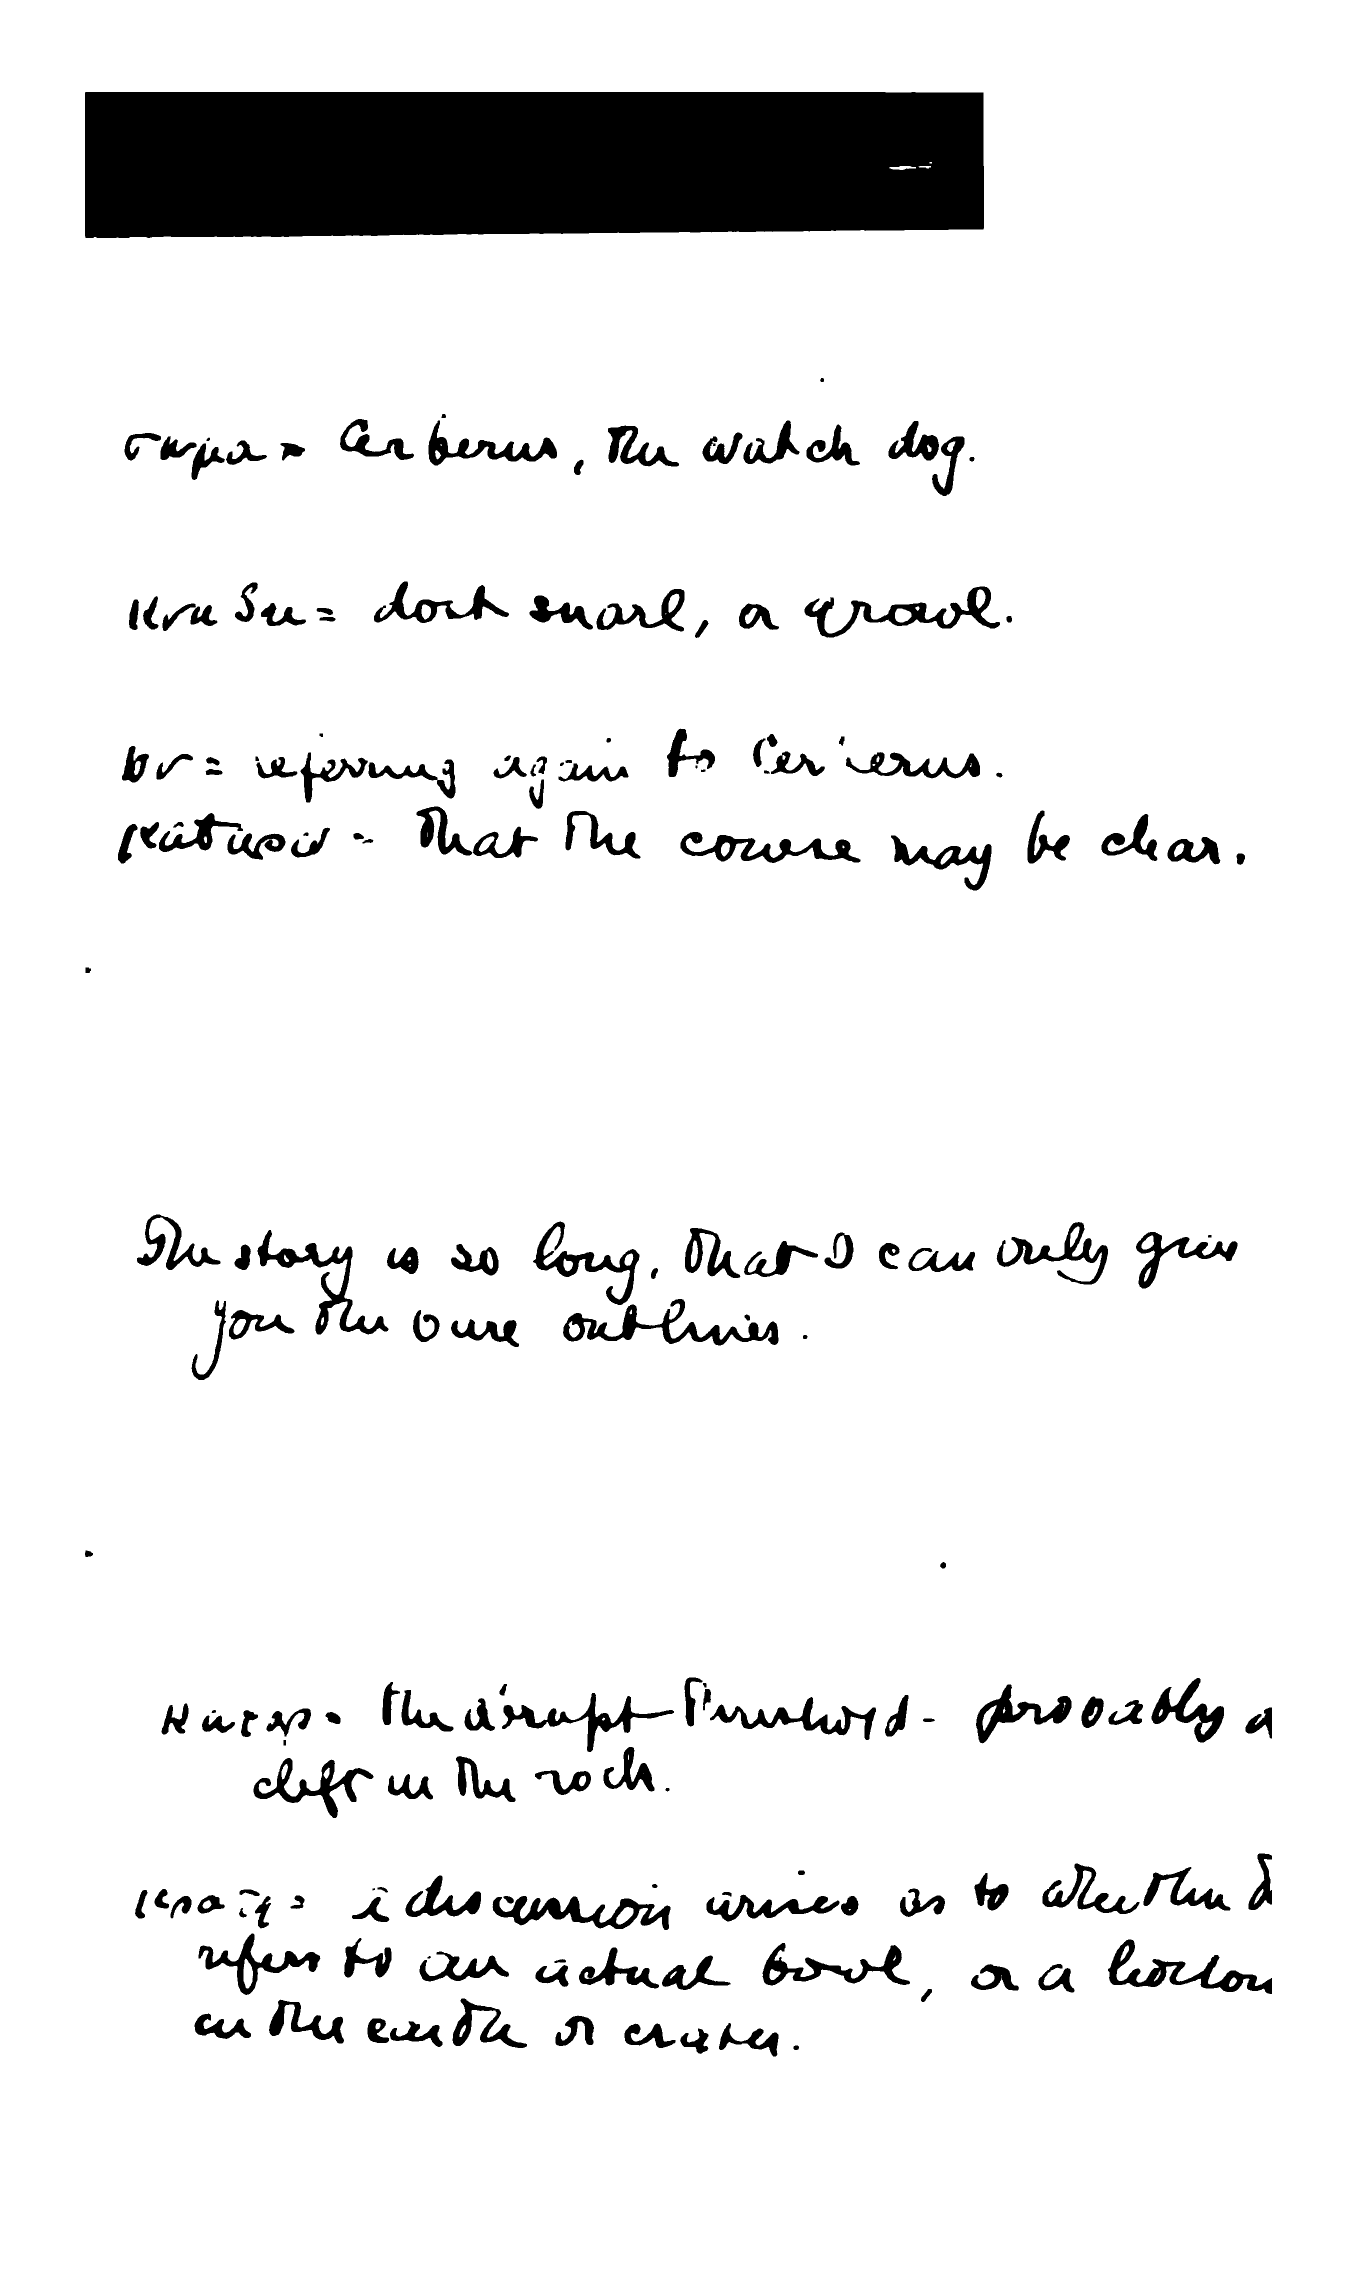 σωμα = Cerberus, the watch dog.
= dost snarl, or growl.
ὃν = referring again to Cerberus.
= that the course may be clear.
The story is so long, that I can only give
you the bare outlines.
= the abrupt threshold - probably a
cleft in the rock.
= a discussion arises as to whether
refers to an actual bowl, or a hollow
in the earth or crater.